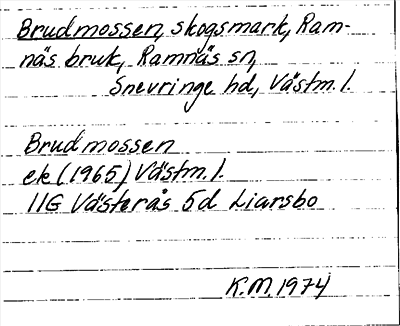 Brudmossen, skogsmark, Ram-
näs bruk, Ramnäs sn,
Snevringe hd, Västm. l.
Brudmossen
ek (1965) Västm. l.
11G Västerås 5d Liarsbo
K.M. 1974